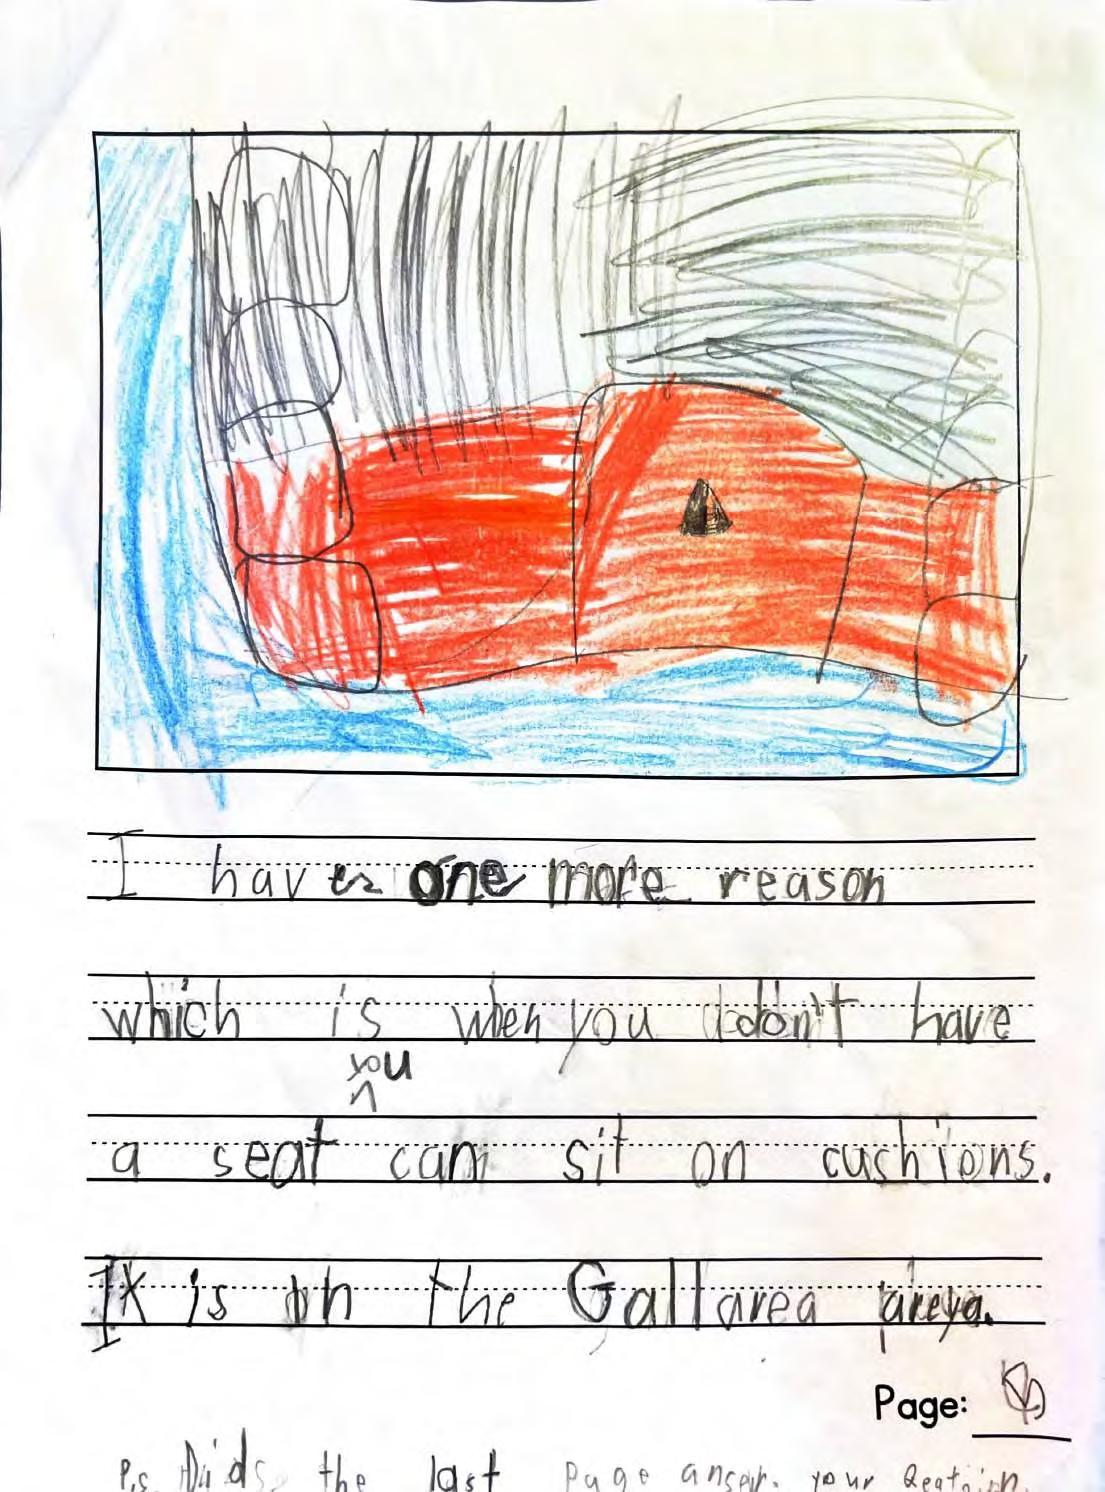 I have one more reason
which is when you don't have
you
a seat can sit on cushions.
It is in the Gallarea areya.
Page:
P.s. Dids the last page anser your Qestoin.